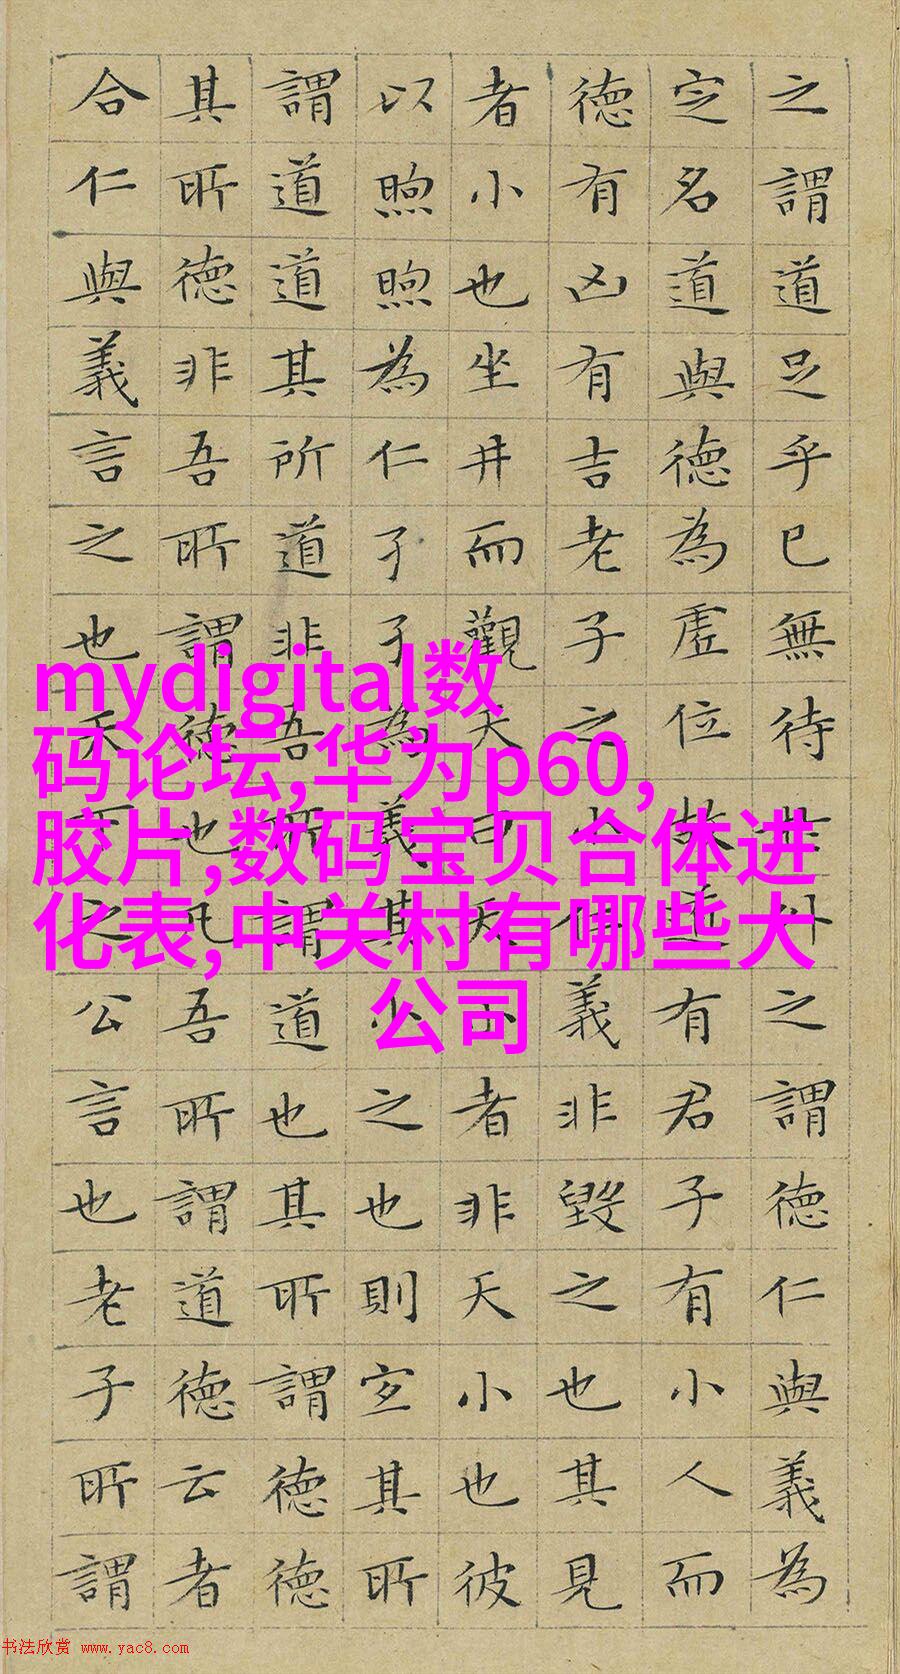 之謂道足乎已無待外之謂德仁與義為
定名道與德為虛位故道有君子有小人而
德有凶有吉老子之小仁義非毀之也其見
者小也坐井而觀天曰天小者非天小也彼
以煦煦為仁孑孑為義其小之也則宜其所
謂道道其所道非吾所謂道也其所謂德德
其所德非吾所謂德也凡吾所謂道德云者
合仁與義言之也天下之公言也老子所謂
mydigital数
码论坛,华为p60,
胶片,数码宝贝合体进
化表,中关村有哪些大
公司
书法欣赏 www.yac8.com